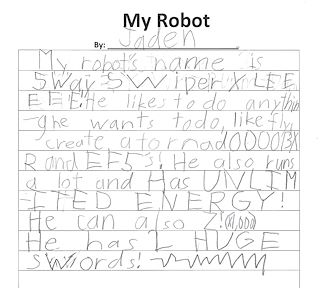 My Robot
By: Jaden
My robot's name is
SWay SWiperX LEE
EEE! He likes to do anythin
g he wants to do, like fly,
create a tornad
R and EF5's! He also runs
a lot and Has UNLIM
ITED ENERGY!
He can also
He has L HUGE
swords!